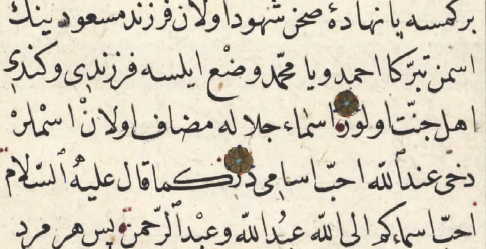 بر كمسه يا نهادهٔ صحن شهود اولان فرزند مسعودينك
اسمن تبرّكا احمد و يا محمّد وضع ايلسه فرزندى و كندى
اهل جنّت اولور اسماء جلاله مضاف اولان اسملر
دخى عند الله احبّ اسامى در كما قال عليه السّلام
احبّ اسماءكم الى الله عبد الله و عبد الرّحمن پس هر مرد